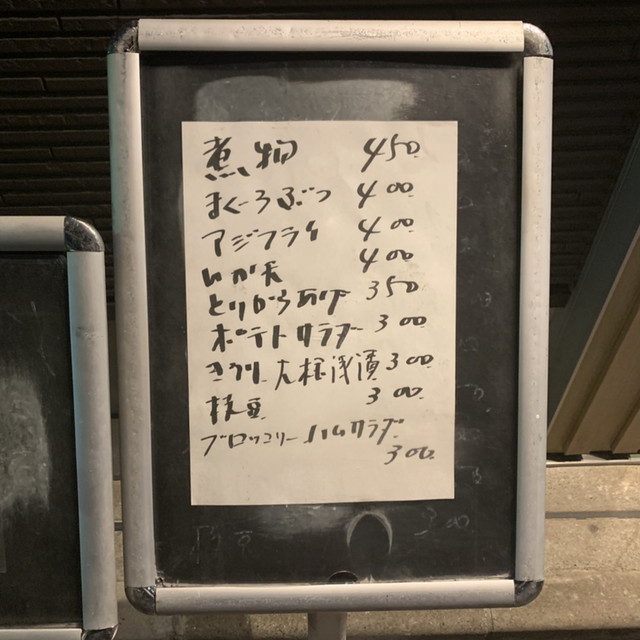 煮物 450.
まぐろぶつ 400.
アジフライ 400.
いか天 400.
とりからあげ 350
ポテトサラダー 300.
きうり.大根浅漬 300.
枝豆 300.
ブロッコリーハムサラダ.
300.
枝豆 300